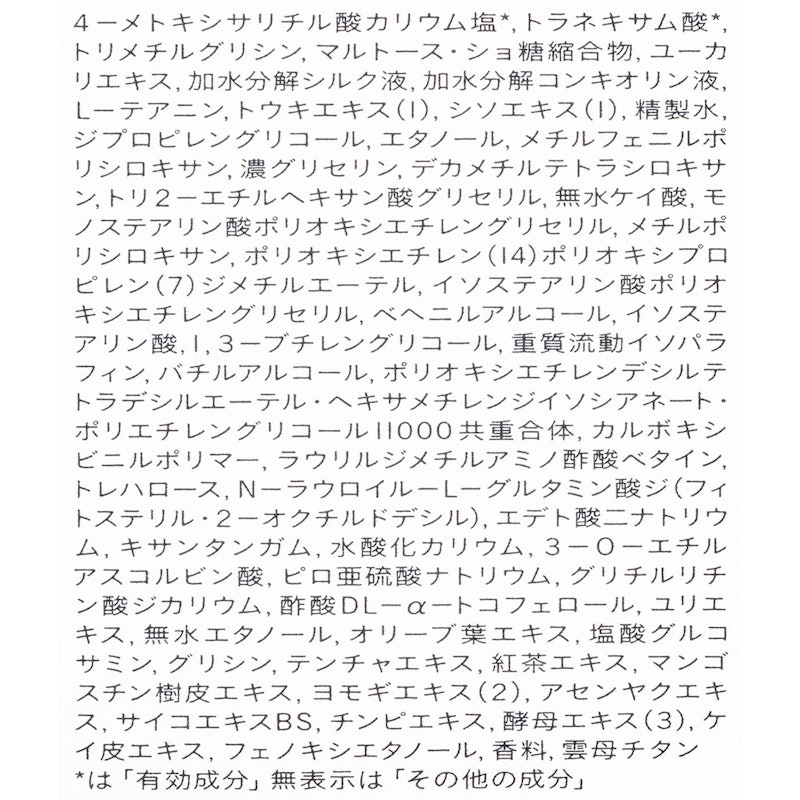 4－メトキシサリチル酸カリウム塩*, トラネキサム酸*,
トリメチルグリシン, マルトース・ショ糖縮合物, ユーカ
リエキス, 加水分解シルク液, 加水分解コンキオリン液,
L－テアニン, トウキエキス(1), シソエキス(1), 精製水,
ジプロピレングリコール, エタノール, メチルフェニルポ
リシロキサン, 濃グリセリン, デカメチルテトラシロキサ
ン, トリ2－エチルヘキサン酸グリセリル, 無水ケイ酸, モ
ノステアリン酸ポリオキシエチレングリセリル, メチルポ
リシロキサン, ポリオキシエチレン(14)ポリオキシプロ
ピレン(7)ジメチルエーテル, イソステアリン酸ポリオ
キシエチレングリセリル, ベヘニルアルコール, イソステ
アリン酸, 1, 3－ブチレングリコール, 重質流動イソパラ
フィン, バチルアルコール, ポリオキシエチレンデシルテ
トラデシルエーテル・ヘキサメチレンジイソシアネート・
ポリエチレングリコール11000共重合体, カルボキシ
ビニルポリマー, ラウリルジメチルアミノ酢酸ベタイン,
トレハロース, N－ラウロイル－L－グルタミン酸ジ(フィ
トステリル・2－オクチルドデシル), エデト酸二ナトリウ
ム, キサンタンガム, 水酸化カリウム, 3－O－エチル
アスコルビン酸, ピロ亜硫酸ナトリウム, グリチルリチ
ン酸ジカリウム, 酢酸DL－α－トコフェロール, ユリエ
キス, 無水エタノール, オリーブ葉エキス, 塩酸グルコ
サミン, グリシン, テンチャエキス, 紅茶エキス, マンゴ
スチン樹皮エキス, ヨモギエキス(2), アセンヤクエキ
ス, サイコエキスBS, チンピエキス, 酵母エキス(3), ケ
イ皮エキス, フェノキシエタノール, 香料, 雲母チタン
*は「有効成分」無表示は「その他の成分」